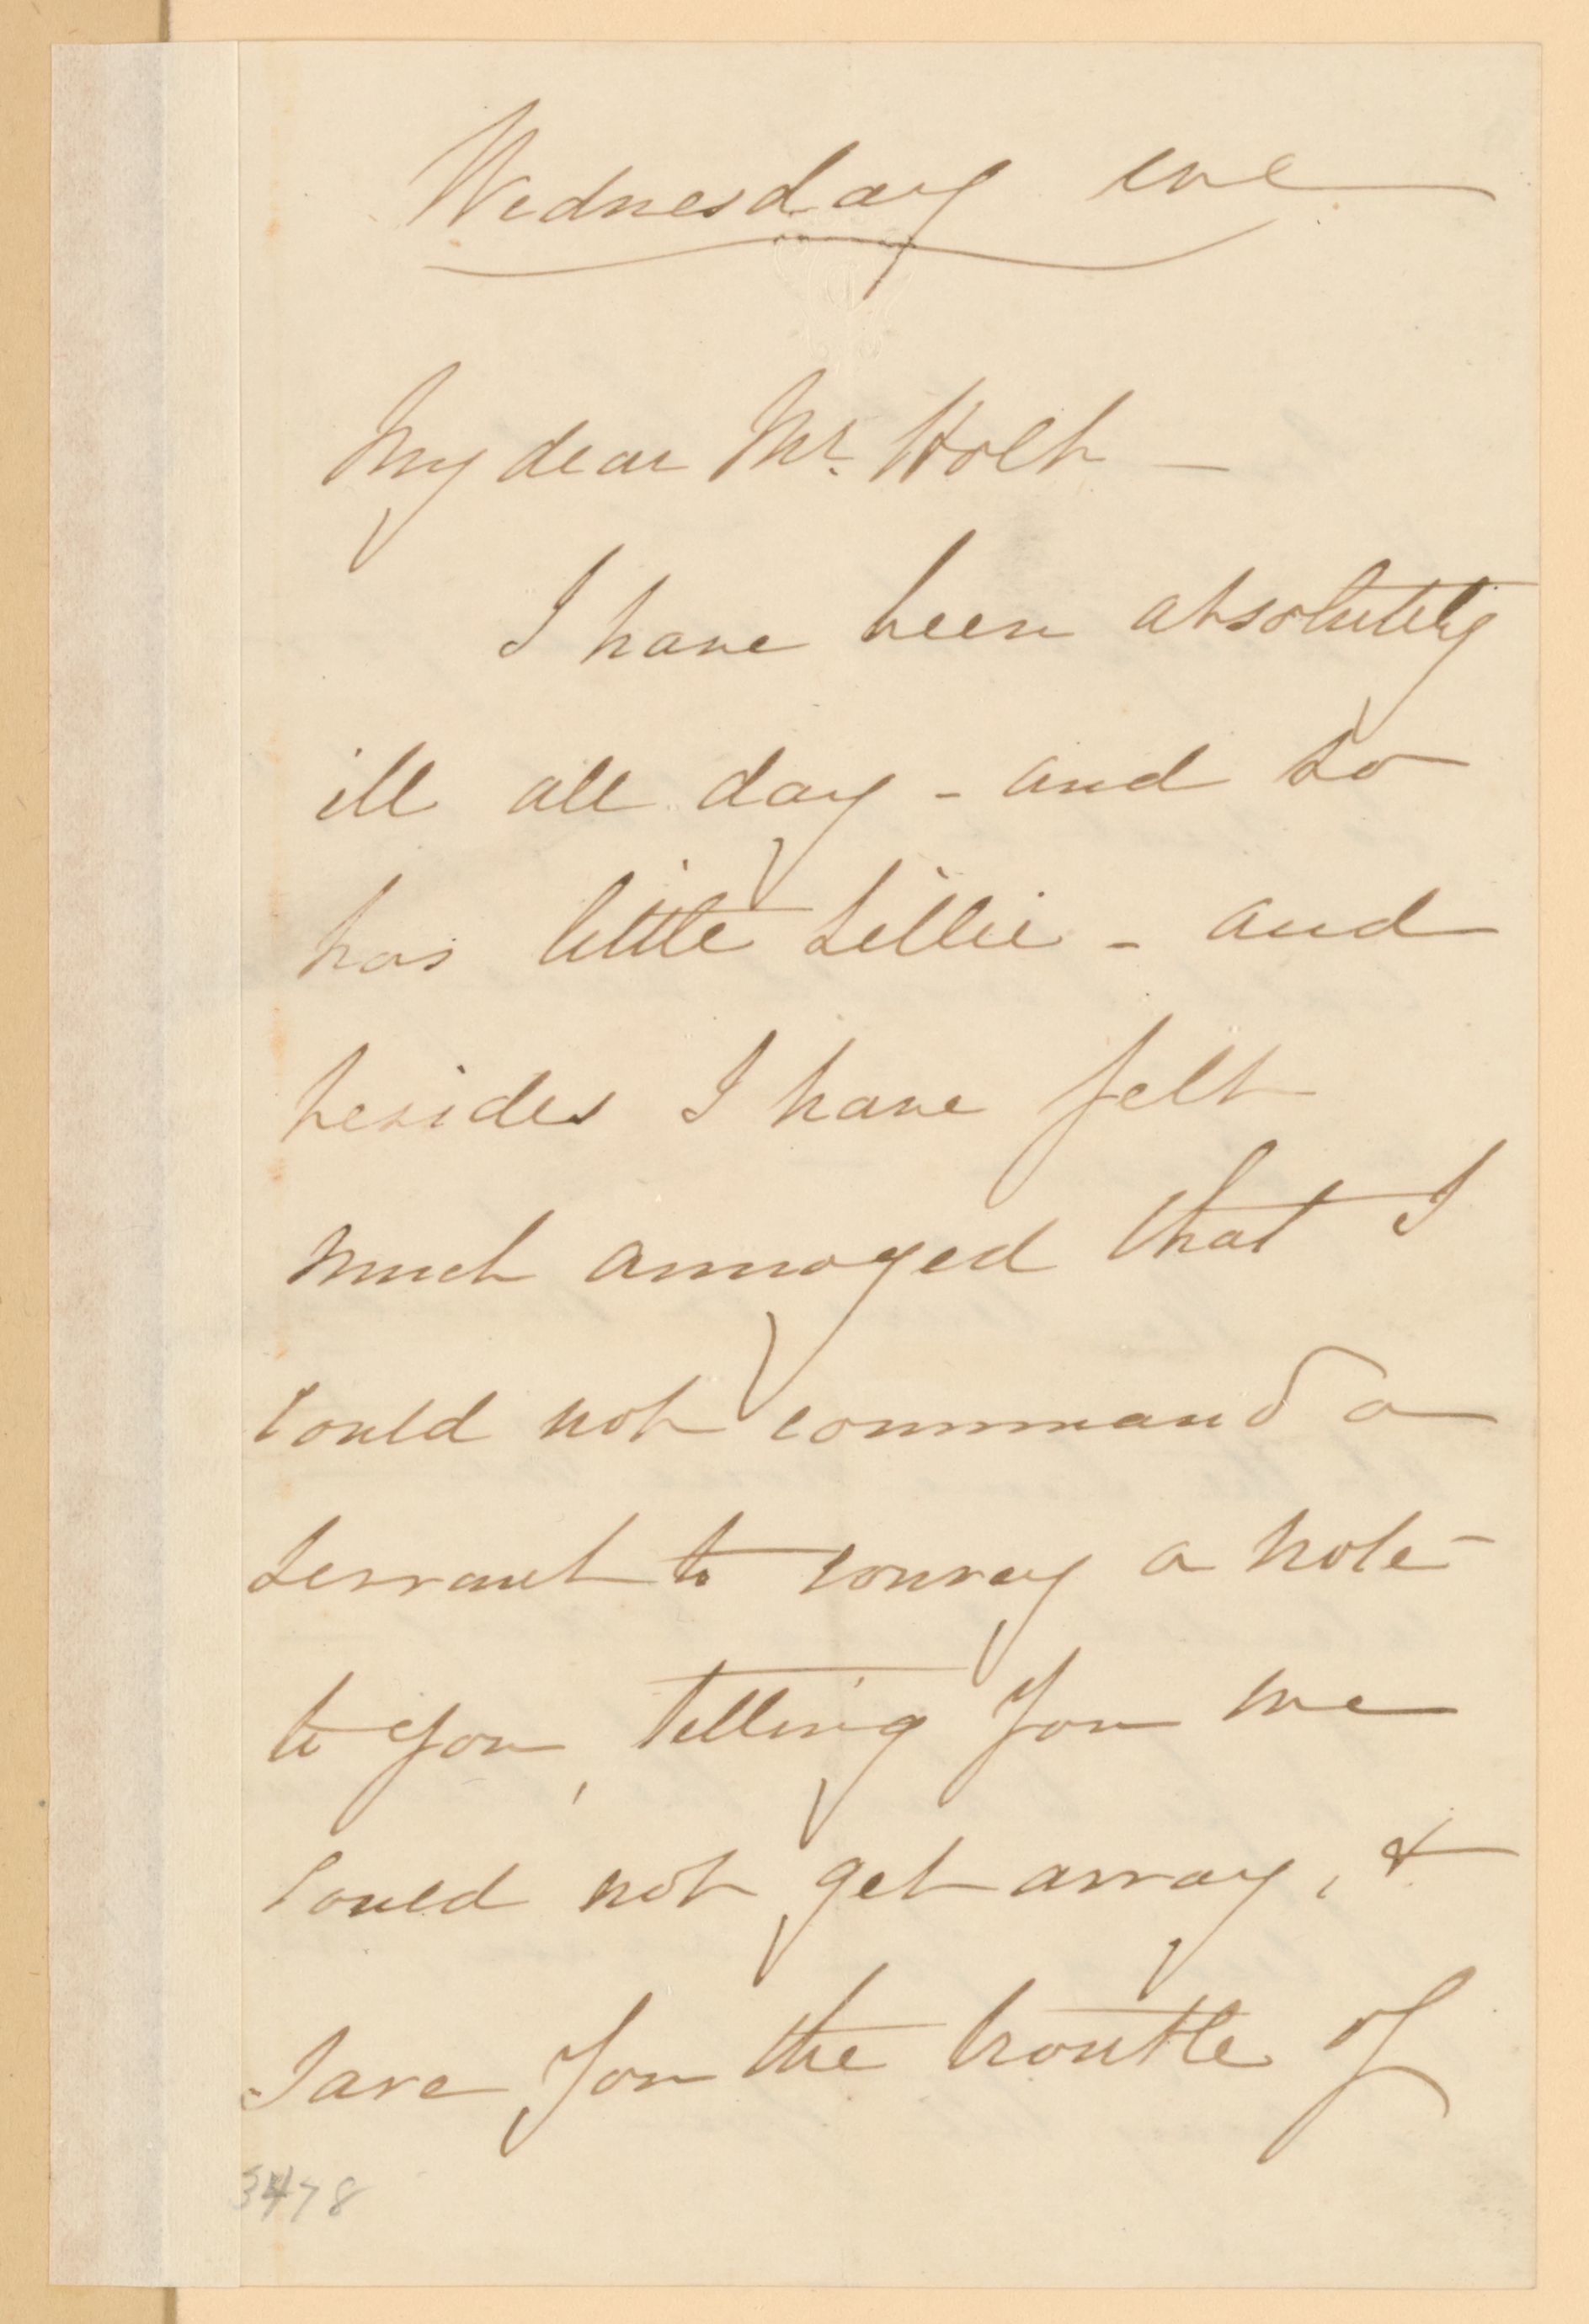 Wednesday eve
My dear Mr. Holt —
I have been absolutely
ill all day - and so
has little Lillie - and
besides I have felt
much annoyed that I
could not command a
servant to convey a note
to you, telling you we
could not get away, &
save you the trouble of
3478